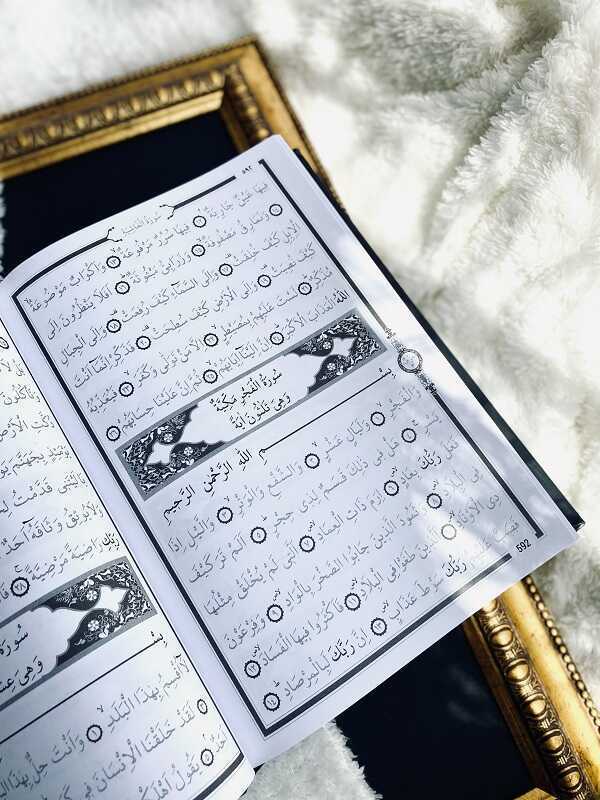 ٥٩٢
سُورَةُ الْغَاشِيَةِ
فِيهَا عَيْنٌ جَارِيَةٌ ﴿١٢﴾ فِيهَا سُرُرٌ مَرْفُوعَةٌ ﴿١٣﴾ وَاَكْوَابٌ مَوْضُوعَةٌ
﴿١٤﴾ وَنَمَارِقُ مَصْفُوفَةٌ ﴿١٥﴾ وَزَرَابِيُّ مَبْثُوثَةٌ ﴿١٦﴾ اَفَلَا يَنْظُرُونَ اِلَى
الْاِبِلِ كَيْفَ خُلِقَتْ ﴿١٧﴾ وَاِلَى السَّمَاءِ كَيْفَ رُفِعَتْ ﴿١٨﴾ وَاِلَى الْجِبَالِ
كَيْفَ نُصِبَتْ ﴿١٩﴾ وَاِلَى الْاَرْضِ كَيْفَ سُطِحَتْ ﴿٢٠﴾ فَذَكِّرْ اِنَّمَا اَنْتَ
مُذَكِّرٌ ﴿٢١﴾ لَسْتَ عَلَيْهِمْ بِمُصَيْطِرٍ ﴿٢٢﴾ اِلَّا مَنْ تَوَلّٰى وَكَفَرَ ﴿٢٣﴾ فَيُعَذِّبُهُ
اللّٰهُ الْعَذَابَ الْاَكْبَرَ ﴿٢٤﴾ اِنَّ اِلَيْنَا اِيَابَهُمْ ﴿٢٥﴾ ثُمَّ اِنَّ عَلَيْنَا حِسَابَهُمْ ﴿٢٦﴾
سُورَةُ الْفَجْرِ مَكِّيَّةٌ
وَهِيَ ثَلٰثُونَ اٰيَةً
بِسْمِ اللّٰهِ الرَّحْمٰنِ الرَّحِيمِ
وَالْفَجْرِ ﴿١﴾ وَلَيَالٍ عَشْرٍ ﴿٢﴾ وَالشَّفْعِ وَالْوَتْرِ ﴿٣﴾ وَالَّيْلِ اِذَا
يَسْرِ ﴿٤﴾ هَلْ فِي ذٰلِكَ قَسَمٌ لِذِي حِجْرٍ ﴿٥﴾ اَلَمْ تَرَ كَيْفَ
فَعَلَ رَبُّكَ بِعَادٍ ﴿٦﴾ اِرَمَ ذَاتِ الْعِمَادِ ﴿٧﴾ اَلَّتِي لَمْ يُخْلَقْ مِثْلُهَا
فِي الْبِلَادِ ﴿٨﴾ وَثَمُودَ الَّذِينَ جَابُوا الصَّخْرَ بِالْوَادِ ﴿٩﴾ وَفِرْعَوْنَ
ذِي الْاَوْتَادِ ﴿١٠﴾ اَلَّذِينَ طَغَوْا فِي الْبِلَادِ ﴿١١﴾ فَاَكْثَرُوا فِيهَا الْفَسَادَ ﴿١٢﴾
فَصَبَّ عَلَيْهِمْ رَبُّكَ سَوْطَ عَذَابٍ ﴿١٣﴾ اِنَّ رَبَّكَ لَبِالْمِرْصَادِ ﴿١٤﴾
592
وَتَأْكُلُونَ
دُكَّتِ الْاَرْضُ
يَوْمَئِذٍ بِجَهَنَّمَ يَوْ
قَدَّمْتُ لِ
وَلَا يُوثِقُ وَثَاقَهُٓ اَحَدٌ
رَبِّكِ رَاضِيَةً مَرْضِيَّةً ﴿٢٨﴾ فَا
سُورَةُ
وَهِيَ عِشْ
بِسْ
لَٓا اُقْسِمُ بِهٰذَا الْبَلَدِ ﴿١﴾ وَاَنْتَ حِلٌّ بِهٰذَا الْبَ
لَقَدْ خَلَقْنَا الْاِنْسَانَ فِي كَبَ
اَحَدٌ ﴿٥﴾ يَقُولُ اَهْلَكْ